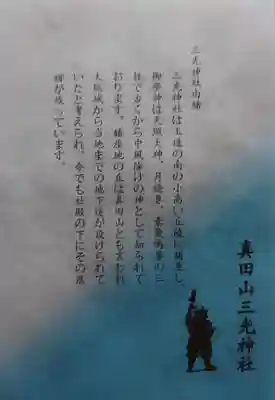 三光神社由緒
三光神社は玉造の南の小高い丘陵に鎮座し、
御祭神は天照大神、月読尊、素戔嗚尊の三
柱で古くから中風除けの神として知られて
おります。鎮座地の丘は真田山とも言われ
大阪城から当地までの地下道が設けられて
いたと考えられ、今でも社殿の下にその遺
跡が残っています。
真田山三光神社